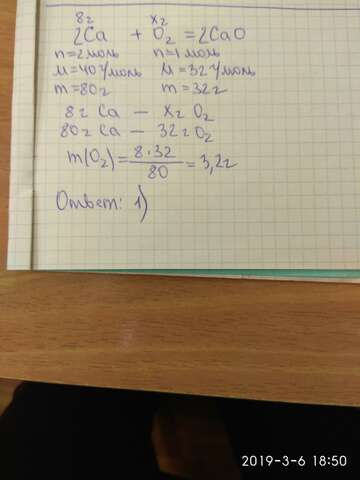 8г х г
2Ca + O₂ = 2CaO
n=2моль n=1моль
M=40г/моль M=32г/моль
m=80г m=32г
8г Ca — Xг O₂
80г Ca — 32г O₂
m(O₂) = 8·32/80 = 3,2г
Ответ: 1)
2019-3-6 18:50